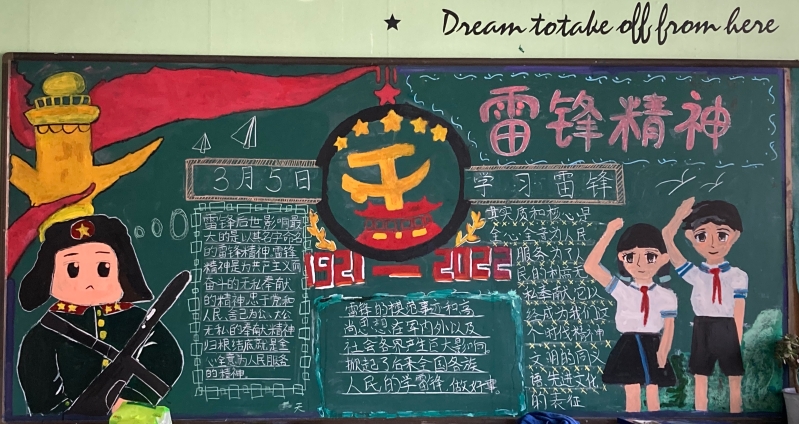 Dream totake off from here
雷锋精神
3月5日
学习雷锋
1921—2022
雷锋后世影响最
大的是以其名字命名
的雷锋精神,雷锋
精神是为共产主义而
奋斗的无私奉献
的精神,忠于党和
人民、舍己为公、大公
无私的奉献精神
归根结底就是全
心全意为人民服务
的精神
雷锋的模范事迹和高
尚思想在军内外以及
社会各界产生巨大影响,
掀起了后来全国各族
人民的学雷锋,做好事。
其实质和核心是
全心全意为人民
服务,为了人
民的利益无
私奉献,已以
经成为我们这
个时代精神
文明的同义
语、先进文化
的表征